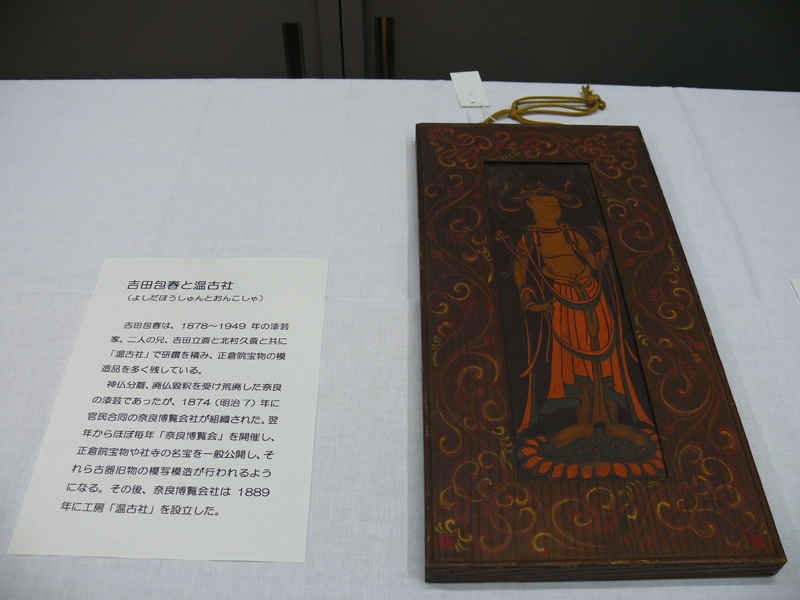 吉田包春と温古社
（よしだほうしゅんとおんこしゃ）
吉田包春は、1878～1949 年の漆芸
家。二人の兄、吉田立斎と北村久斎と共に
「温古社」で研鑽を積み、正倉院宝物の模
造品を多く残している。
神仏分離、廃仏毀釈を受け荒廃した奈良
の漆芸であったが、1874（明治 7）年に
官民合同の奈良博覧会社が組織された。翌
年からほぼ毎年「奈良博覧会」を開催し、
正倉院宝物や社寺の名宝を一般公開し、そ
れら古器旧物の模写模造が行われるよう
になる。その後、奈良博覧会社は 1889
年に工房「温古社」を設立した。